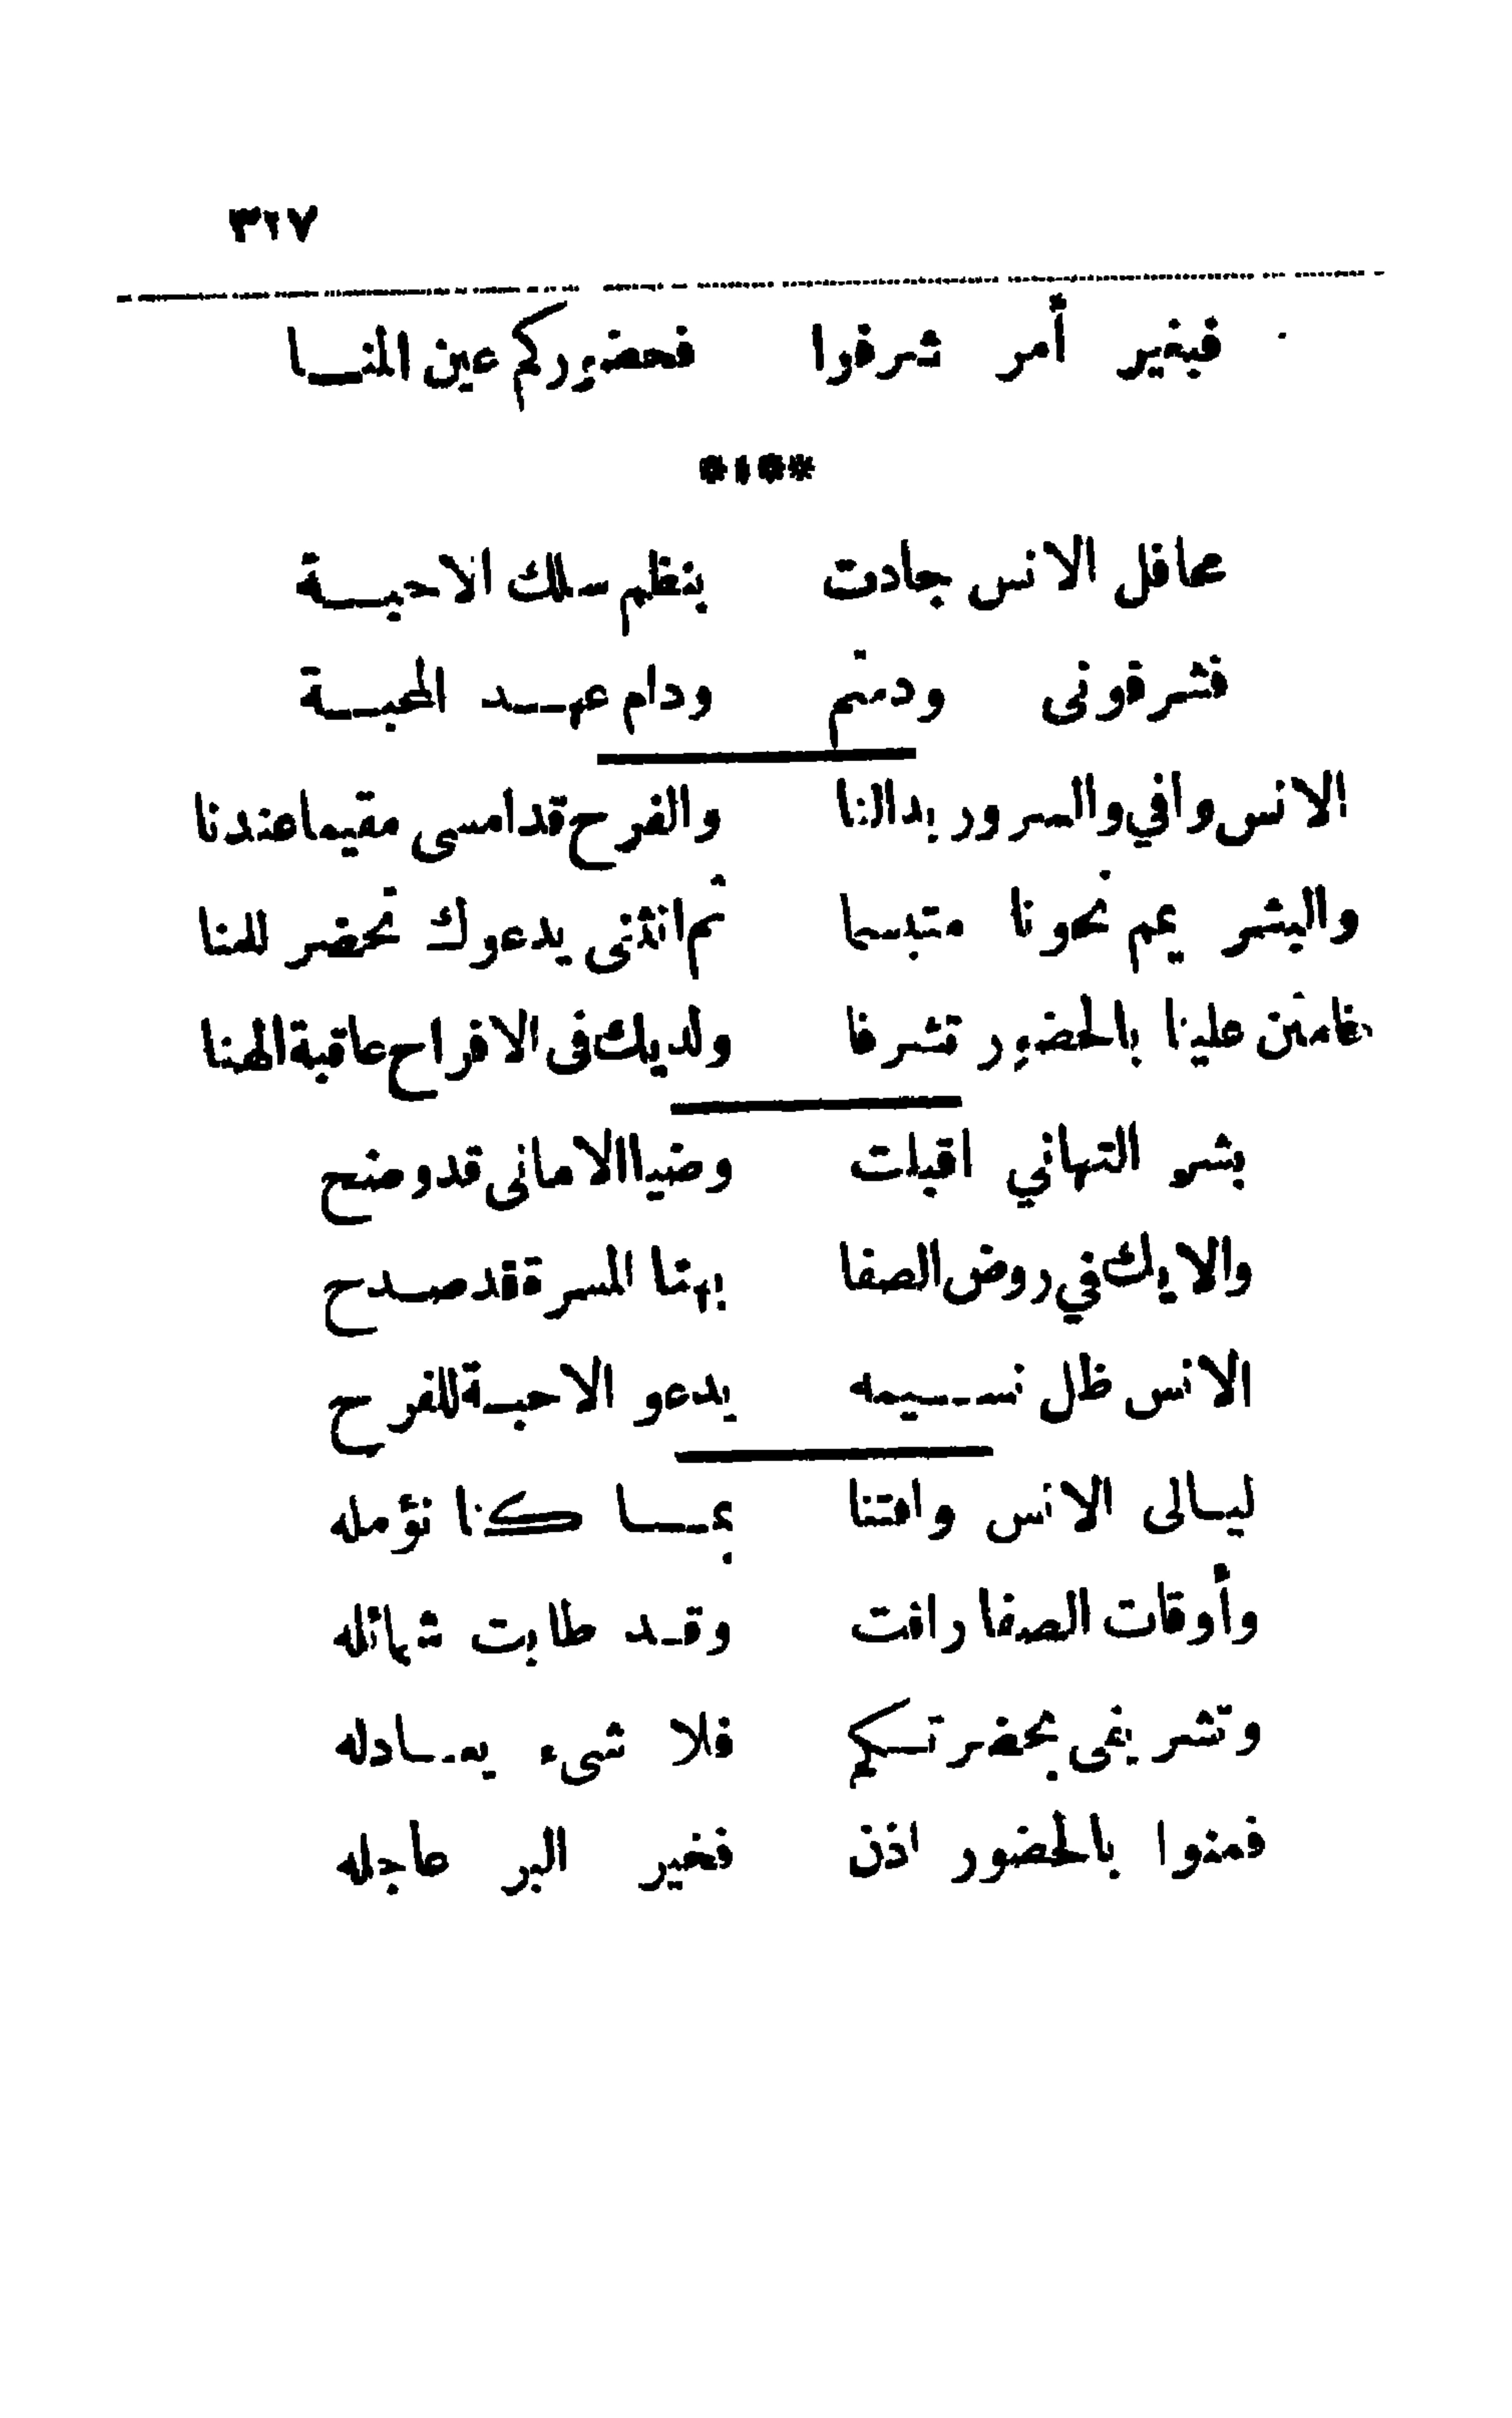 ٣٢٧
فبغير أمر شرفوا فحضوركم عين المنا
****
محافل الانس جادت بنظم سلك الاحبة
فشرفونى ودمتم ودام عهد المحبة
الانس وافي والسرور بدالنا والفرح قد امسى مقيما عندنا
والبشر يمم نحونا متبسما ثم انثنى يدعوك تحضر للهنا
فامنن علينا بالحضور تشرفا ولديك فى الافراح عاقبة الهنا
بشر التهاني اقبلت وضيا الامانى قد وضح
والايك في روض الصفا بهنا المسرة قد صدح
الانس ظل نسيمه يدعو الاحبة للفرح
ليالى الانس وافتنا بما كنا نؤمله
وأوقات الصفا راقت وقد طابت شمائله
وتشريفى بحضرتكم فلا شىء يعادله
فمنوا بالحضور اذن فخير البر عاجله